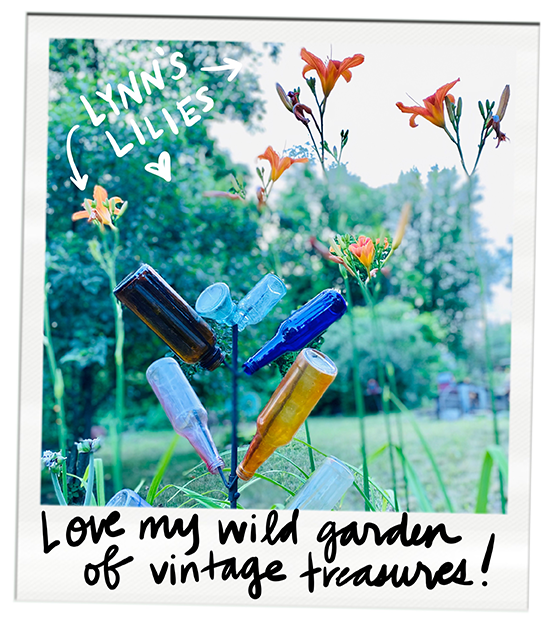 LYNN'S
LILIES
Love my wild garden
of vintage treasures!